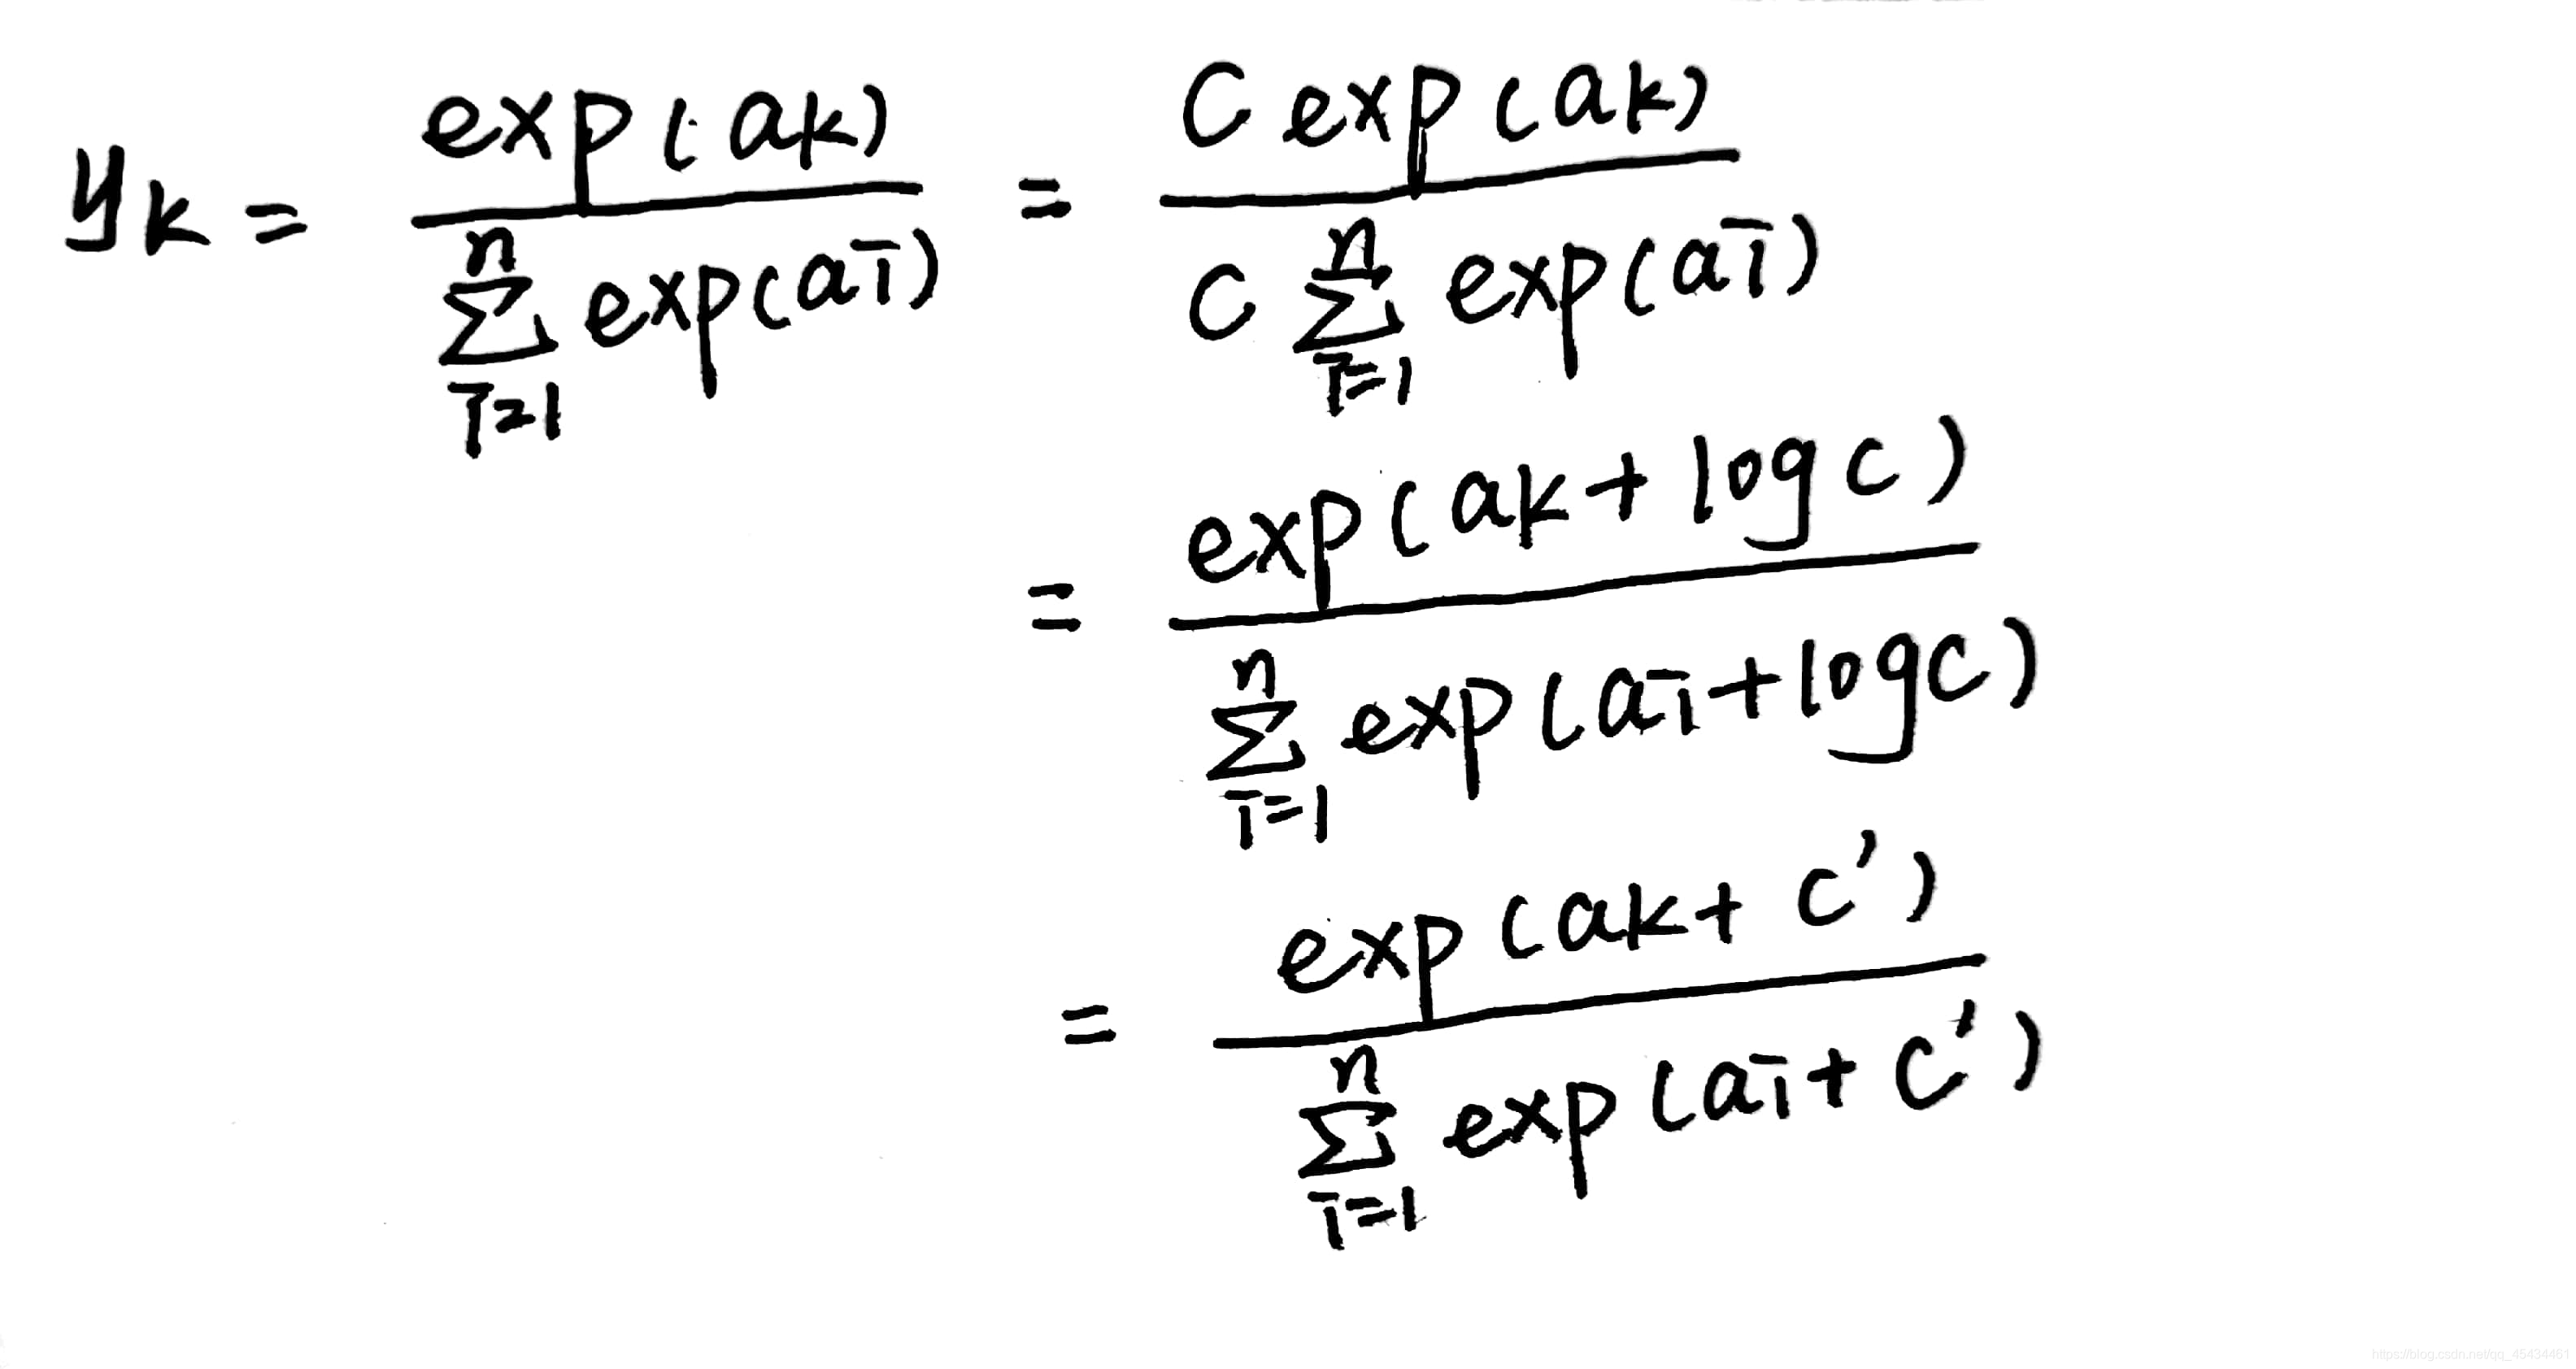 yk = exp(ak) / Σ_{i=1}^{n} exp(ai) = C exp(ak) / C Σ_{i=1}^{n} exp(ai)
= exp(ak + log C) / Σ_{i=1}^{n} exp(ai + log C)
= exp(ak + C') / Σ_{i=1}^{n} exp(ai + C')
https://blog.csdn.net/qq_45434461